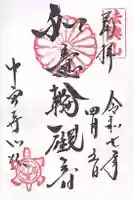 奉拝
令和七年
四月五日
如意輪觀音
中宮寺